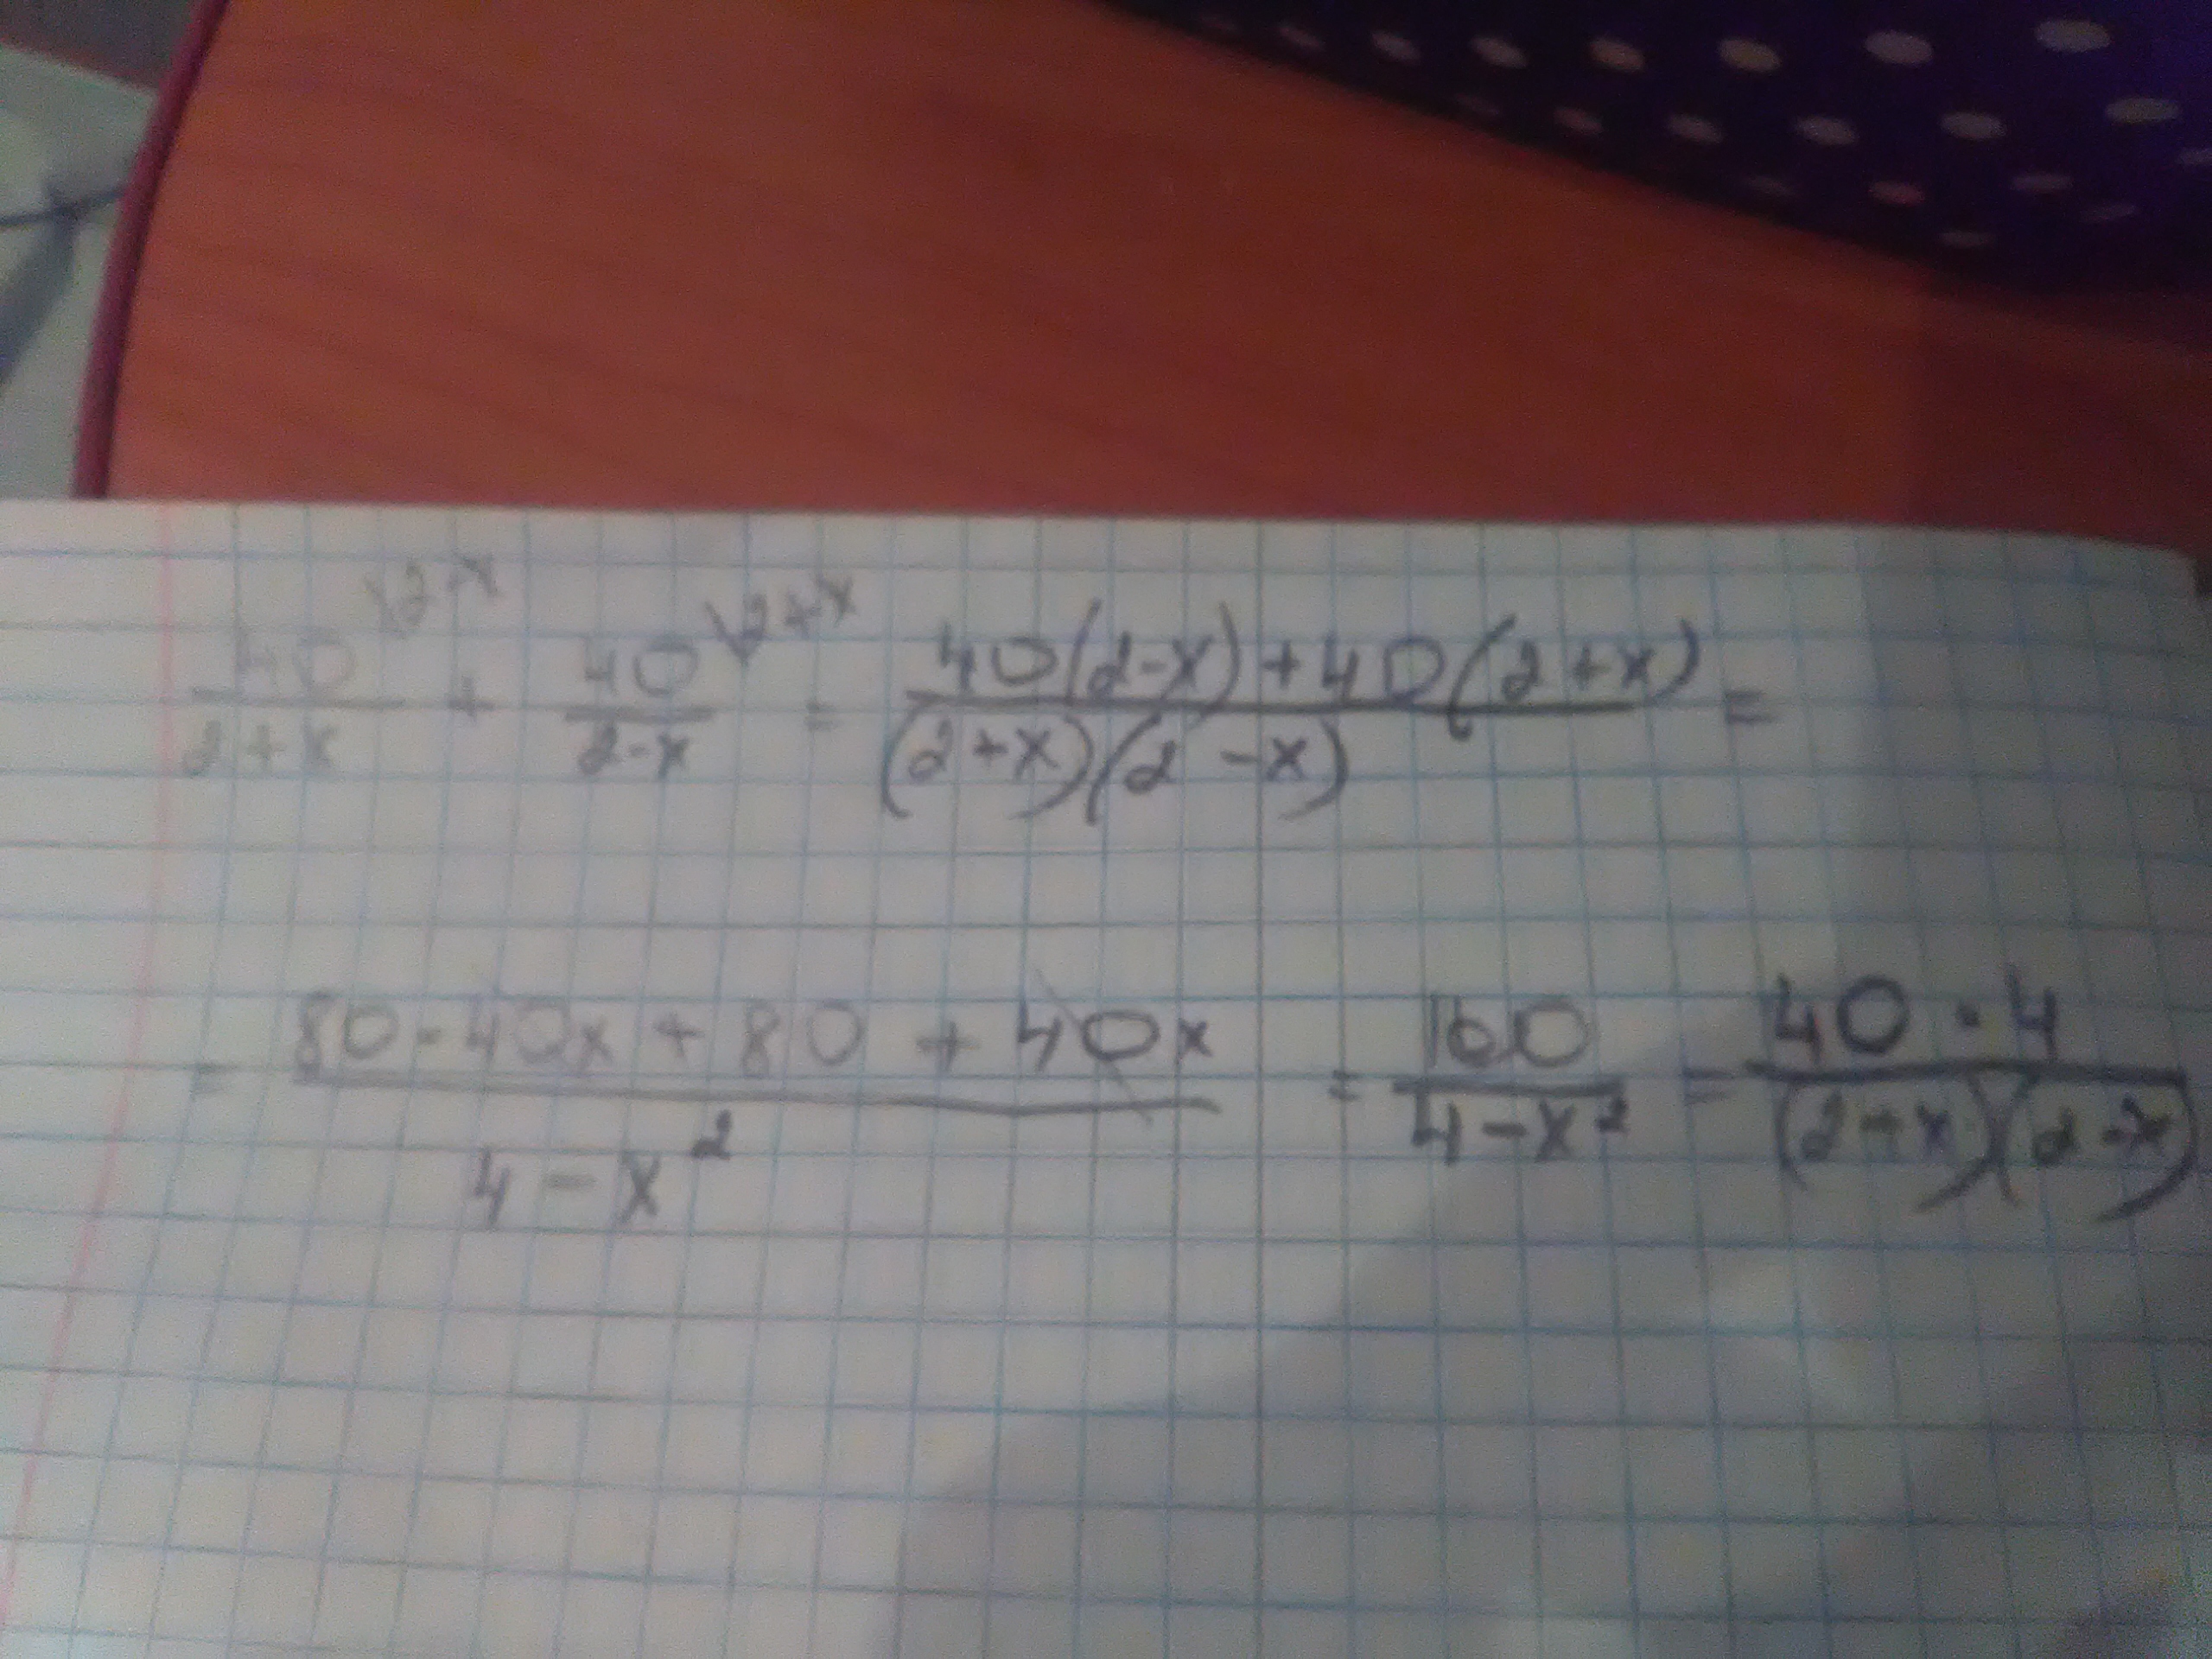 40\2-x / 2+x + 40\2+x / 2-x = 40(2-x)+40(2+x) / (2+x)(2-x) =
= 80-40x+80+40x / 4-x² = 160 / 4-x² = 40·4 / (2+x)(2-x)